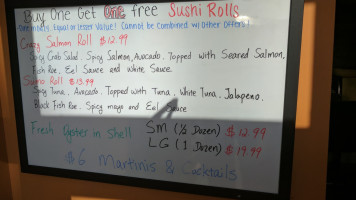 Buy One Get One free Sushi Rolls
Equal or lesser Value! Cannot be Combined w/ Other Offers!
Crazy Salmon Roll $12.99
Spicy Crab Salad, Spicy Salmon, Avocado, Topped with Seared Salmon,
Fish Roe, Eel Sauce and White Sauce.
Roll $13.99
Spicy Tuna, Avocado, Topped with Tuna, White Tuna, Jalapeno,
Black Fish Roe, Spicy mayo and Eel Sauce
Fresh Oyster in Shell SM (½ Dozen) $12.99
LG (1 Dozen) $19.99
$6 Martinis & Cocktails